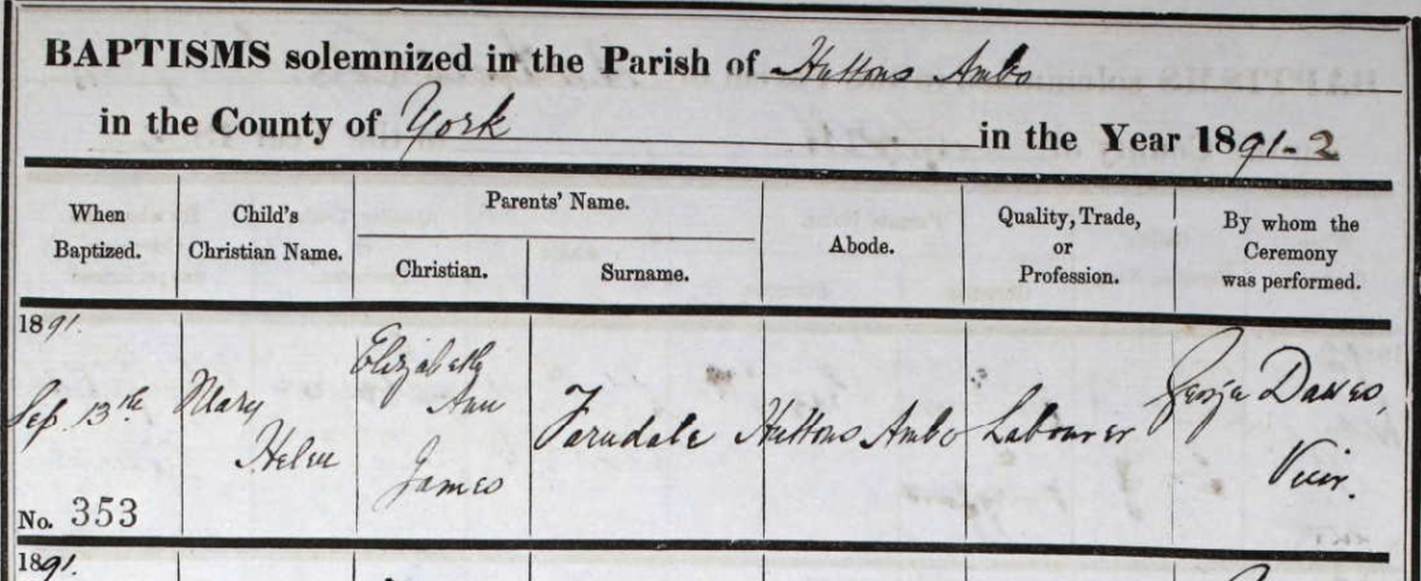 BAPTISMS solemnized in the Parish of Huttons Ambo
in the County of York in the Year 1891-2
When Baptized.
Child's Christian Name.
Parents' Name.
Christian.
Surname.
Abode.
Quality, Trade, or Profession.
By whom the Ceremony was performed.
1891.
Sep 13th
No. 353
Mary
Helen
Elizabeth
Ann
James
Farndale
Huttons Ambo
Labourer
George Dawes,
Vicar.
1891.